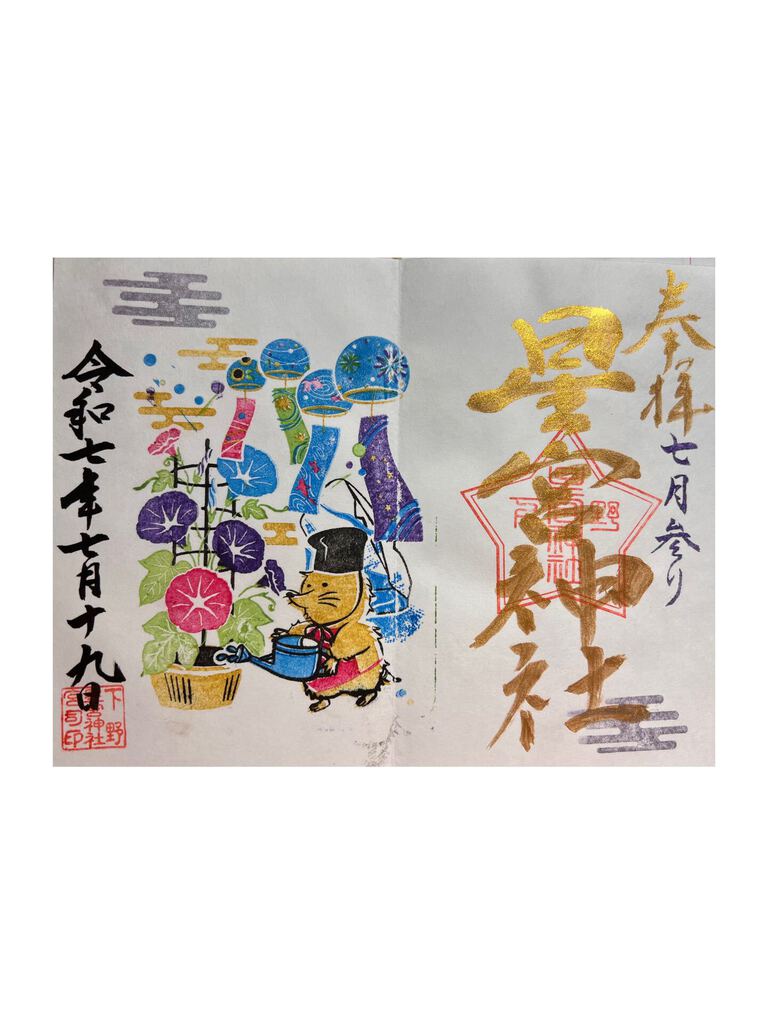 奉拝
七月参り
星宮神社
令和七年七月十九日
下野
星宮神社
宮司印